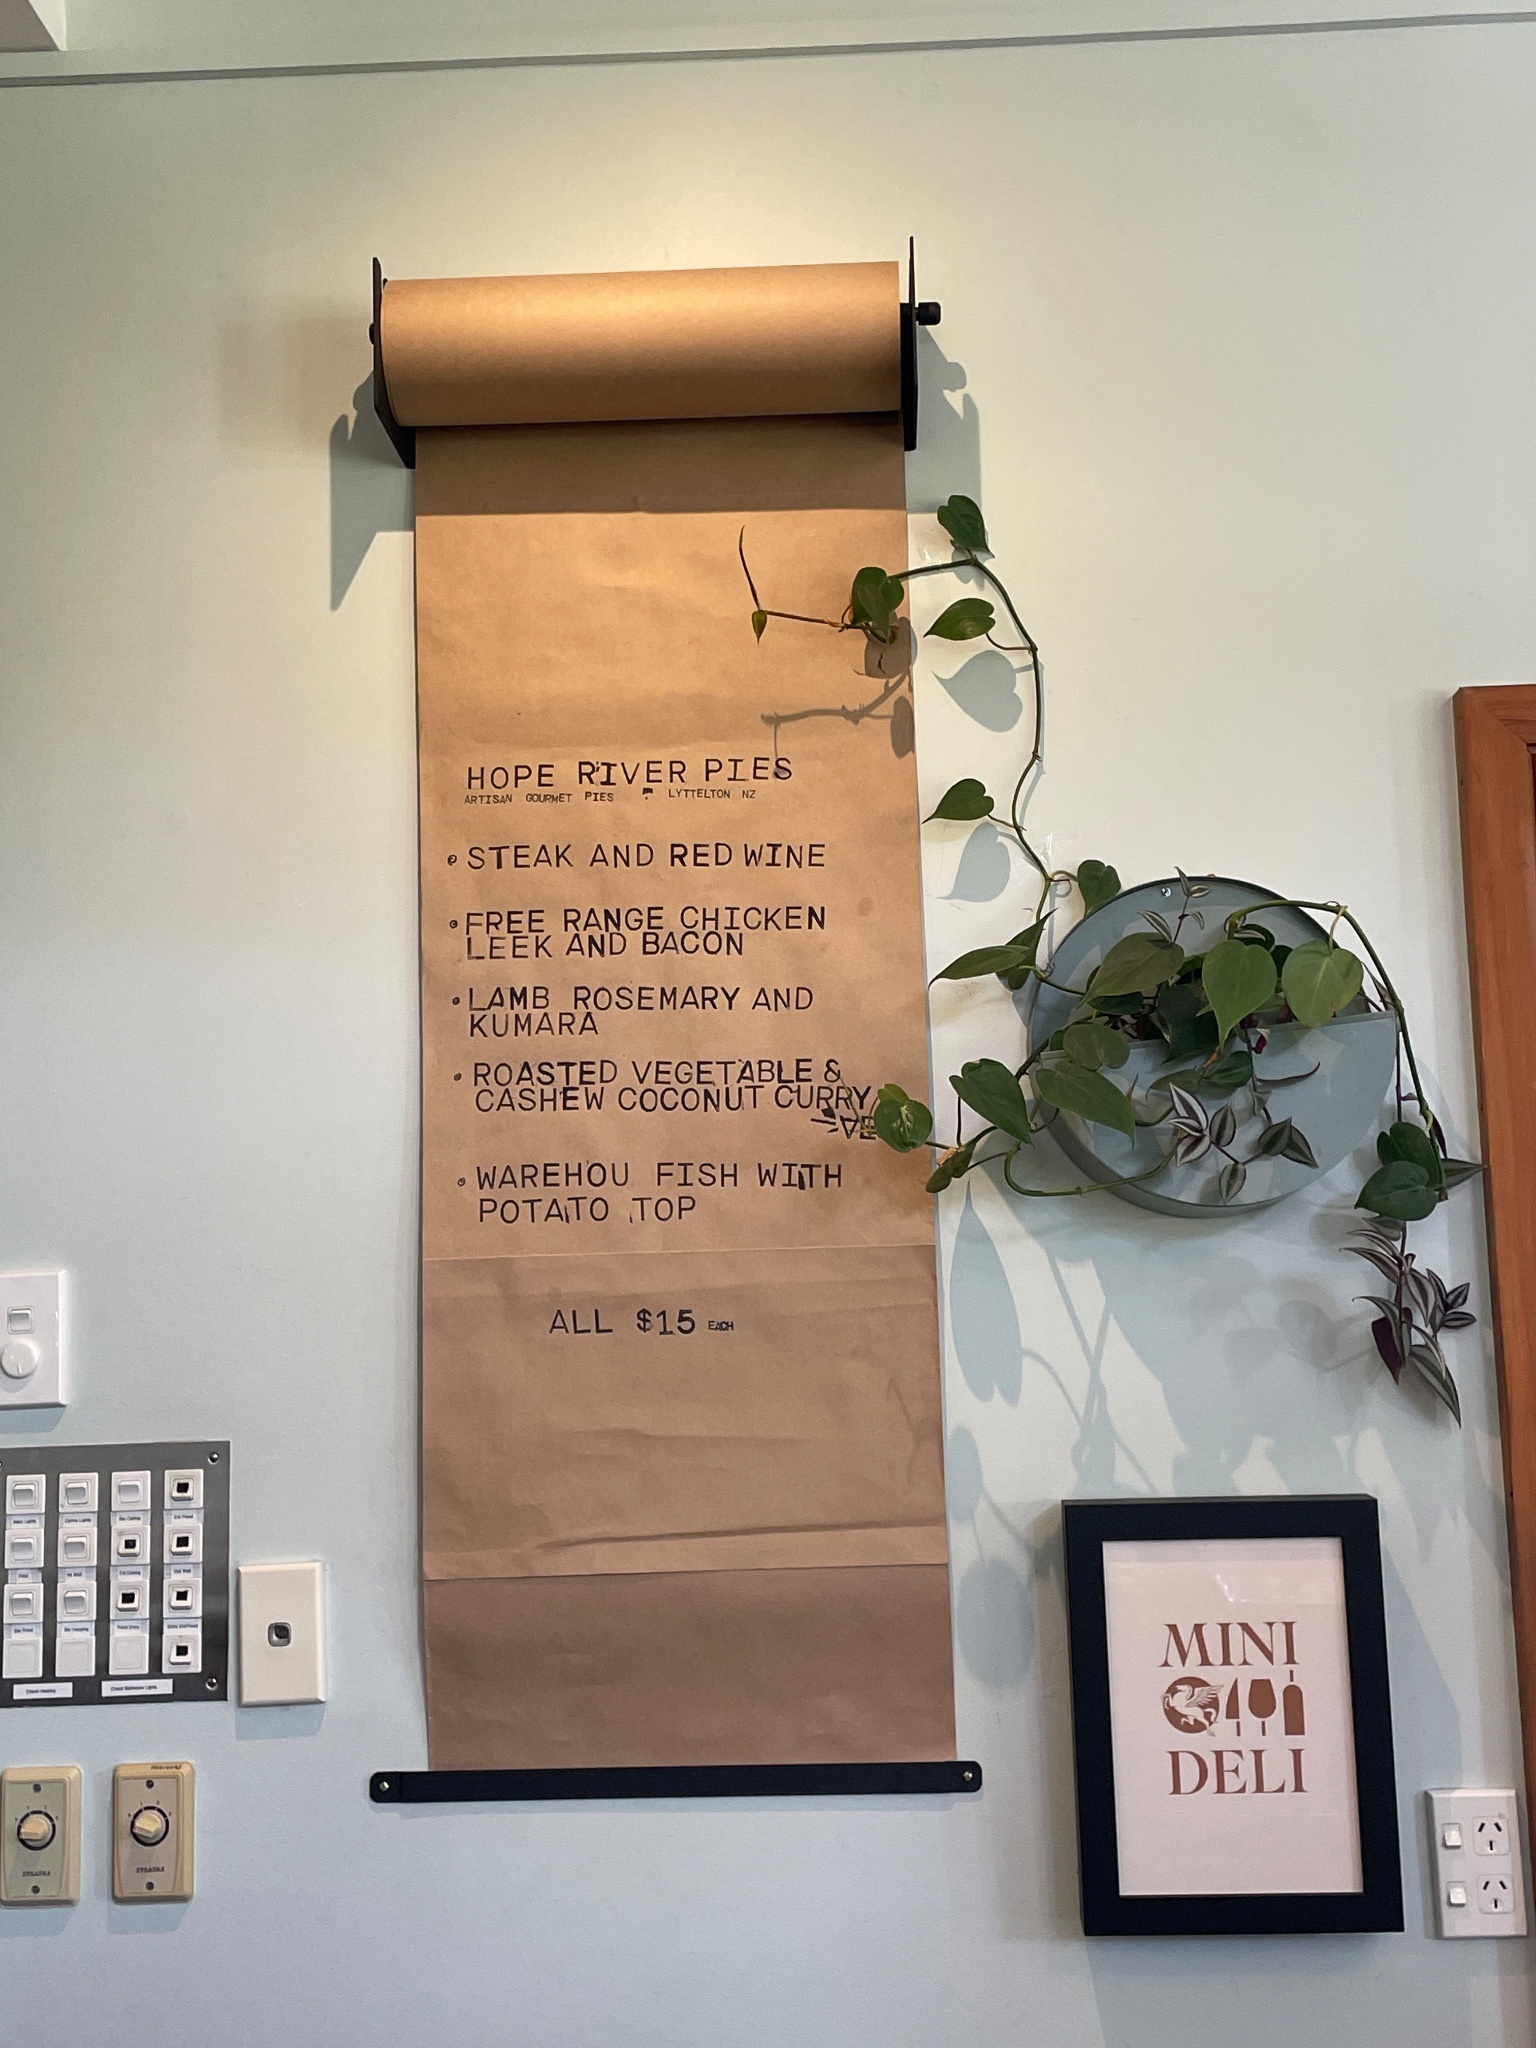 HOPE RIVER PIES
ARTISAN GOURMET PIES LYTTELTON NZ
STEAK AND RED WINE
FREE RANGE CHICKEN
LEEK AND BACON
LAMB ROSEMARY AND
KUMARA
ROASTED VEGETABLE &
CASHEW COCONUT CURRY
WAREHOU FISH WITH
POTATO TOP
ALL $15 EACH
MINI
DELI